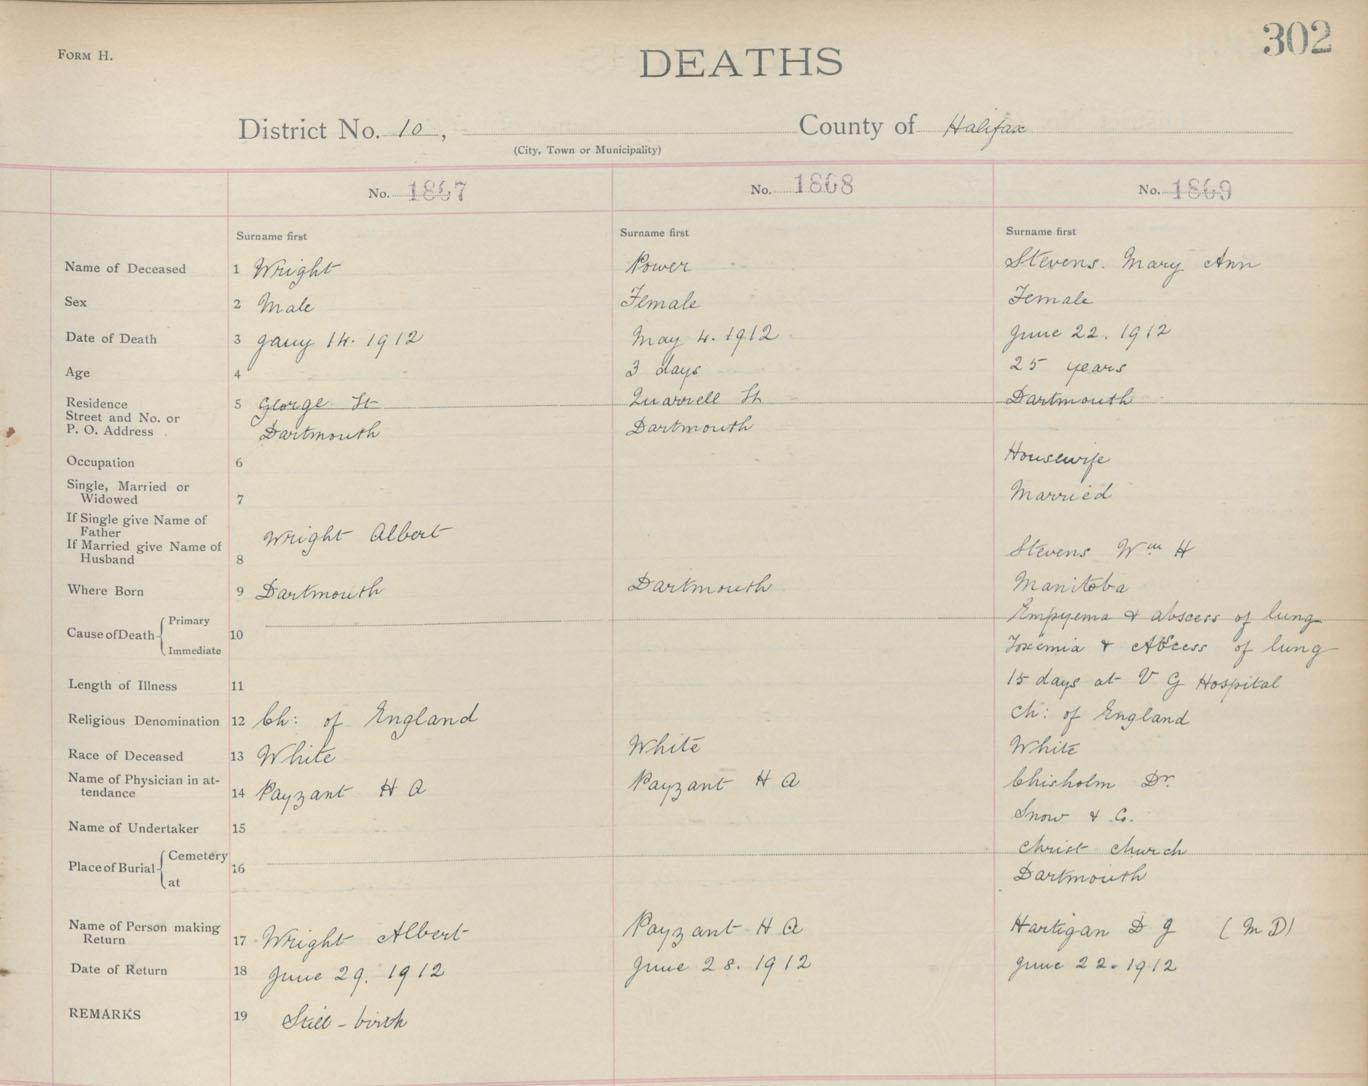 302
FORM H.
DEATHS
District No. 10, County of Halifax
(City, Town or Municipality)
No. 1867 No. 1868 No. 1869
Surname first Surname first Surname first
Name of Deceased 1 Wright Power Stevens. Mary Ann
Sex 2 Male Female Female
Date of Death 3 Jany 14. 1912 May 4. 1912 June 22. 1912
Age 4 3 days 25 years
Residence 5 George St Quarrell St Dartmouth
Street and No. or
P. O. Address Dartmouth Dartmouth
Occupation 6 Housewife
Single, Married or
Widowed 7 Married
If Single give Name of
Father Wright Albert
If Married give Name of
Husband 8 Stevens Wm H
Where Born 9 Dartmouth Dartmouth Manitoba
Cause of Death Primary Empyema & abscess of lung
10
Immediate Toxemia & Abscess of lung
Length of Illness 11 15 days at V G Hospital
Religious Denomination 12 Ch: of England Ch: of England
Race of Deceased 13 White White White
Name of Physician in at-
tendance 14 Payzant H A Payzant H A Chisholm Dr.
Name of Undertaker 15 Snow & Co.
Place of Burial Cemetery Christ Church
16
at Dartmouth
Name of Person making
Return 17 Wright Albert Payzant H A Hartigan D J (M D)
Date of Return 18 June 29. 1912 June 28. 1912 June 22. 1912
REMARKS 19 Still-birth